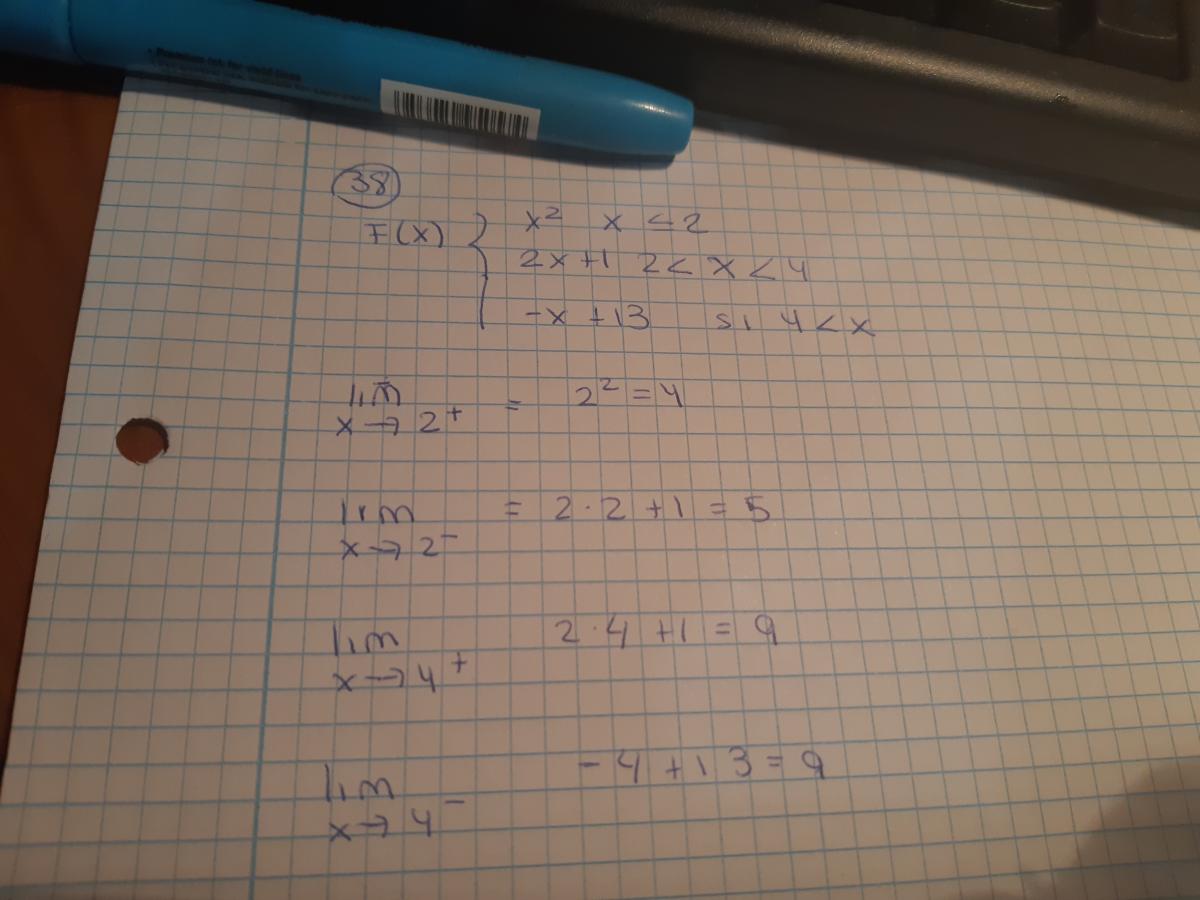 38
F(x) { x² x < 2
2x + 1 2 < x < 4
-x + 13 si 4 < x
lim
x → 2⁺ = 2² = 4
lim
x → 2⁻ = 2 · 2 + 1 = 5
lim
x → 4⁺ 2 · 4 + 1 = 9
lim
x → 4⁻ -4 + 13 = 9